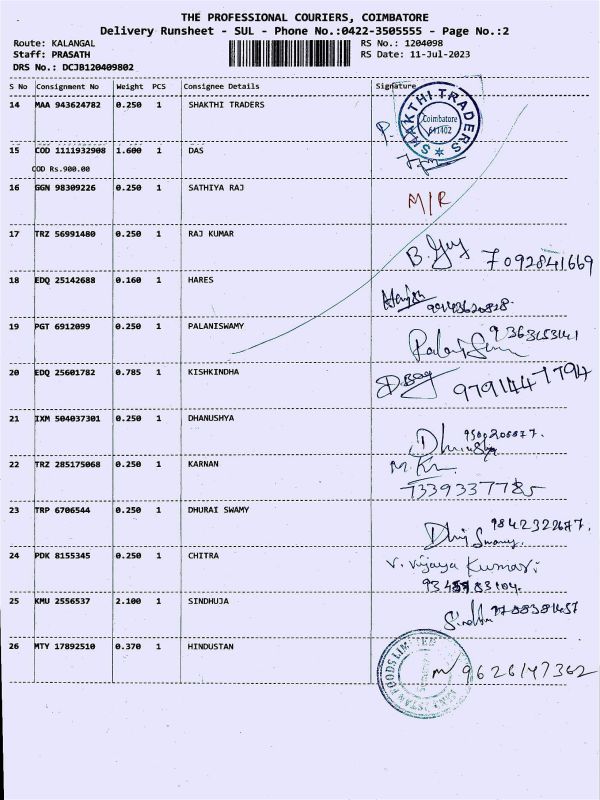 THE PROFESSIONAL COURIERS, COIMBATORE
Delivery Runsheet - SUL - Phone No.:0422-3505555 - Page No.:2
Route: KALANGAL
RS No.: 1204098
Staff: PRASATH
RS Date: 11-Jul-2023
DRS No.: DCJB120409802
S No Consignment No Weight PCS Consignee Details Signature
14 MAA 943624782 0.250 1 SHAKTHI TRADERS
SHAKTHI TRADERS
Coimbatore
641402
15 COD 1111932908 1.600 1 DAS
COD Rs.900.00
16 GGN 98309226 0.250 1 SATHIYA RAJ
M/R
17 TRZ 56991480 0.250 1 RAJ KUMAR
7092841669
18 EDQ 25142688 0.160 1 HARES
19 PGT 6912099 0.250 1 PALANISWAMY
20 EDQ 25601782 0.785 1 KISHKINDHA
9791447794
21 IXM 504037301 0.250 1 DHANUSHYA
22 TRZ 285175068 0.250 1 KARNAN
7339337785
23 TRP 6706544 0.250 1 DHURAI SWAMY
9842322677.
24 PDK 8155345 0.250 1 CHITRA
V. Vijaya Kumar
25 KMU 2556537 2.100 1 SINDHUJA
26 MTY 17892510 0.370 1 HINDUSTAN
9626147362
FOODS LIMITED